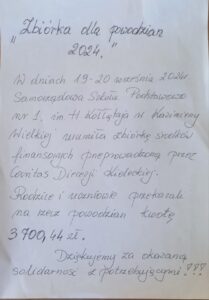 "Zbiórka dla powodzian
2024."
W dniach 19-20 września 2024r
Samorządowa Szkoła Podstawowa
nr 1, im H Kołłątaja w Kazimierzy
Wielkiej uczniła zbiórkę środków
finansowych przeprowadzoną przez
Caritas Diecezji Kieleckiej.
Rodzice i uczniowie przekazali
na rzecz powodzian kwotę
3700,44 zł.
Dziękujemy za okazaną
solidarność z potrzebującymi!!!